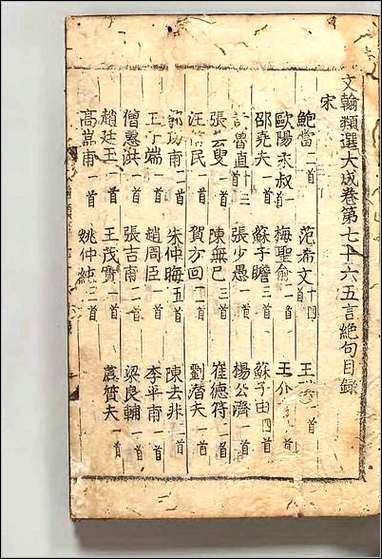 文翰類選大成卷第七十六五言絶句目録
宋
鮑當二首 范希文十四首 王 一首
歐陽永叔一首 梅聖俞一首 王介
邵堯夫一首 蘇子瞻三首 蘇子由四首
曾直十三首 張少愚一首 楊公濟二首
張 叟一首 陳無己三首 崔德符二首
汪 民一首 賀方回一首 劉潛夫一首
功甫二首 朱仲晦五首 陳去非二首
王 端一首 趙周臣一首 李平甫一首
僧惠洪一首 張吉甫一首 梁良輔一首
趙廷王一首 王茂實一首
高嵩甫一首 姚仲純二首 質夫一首